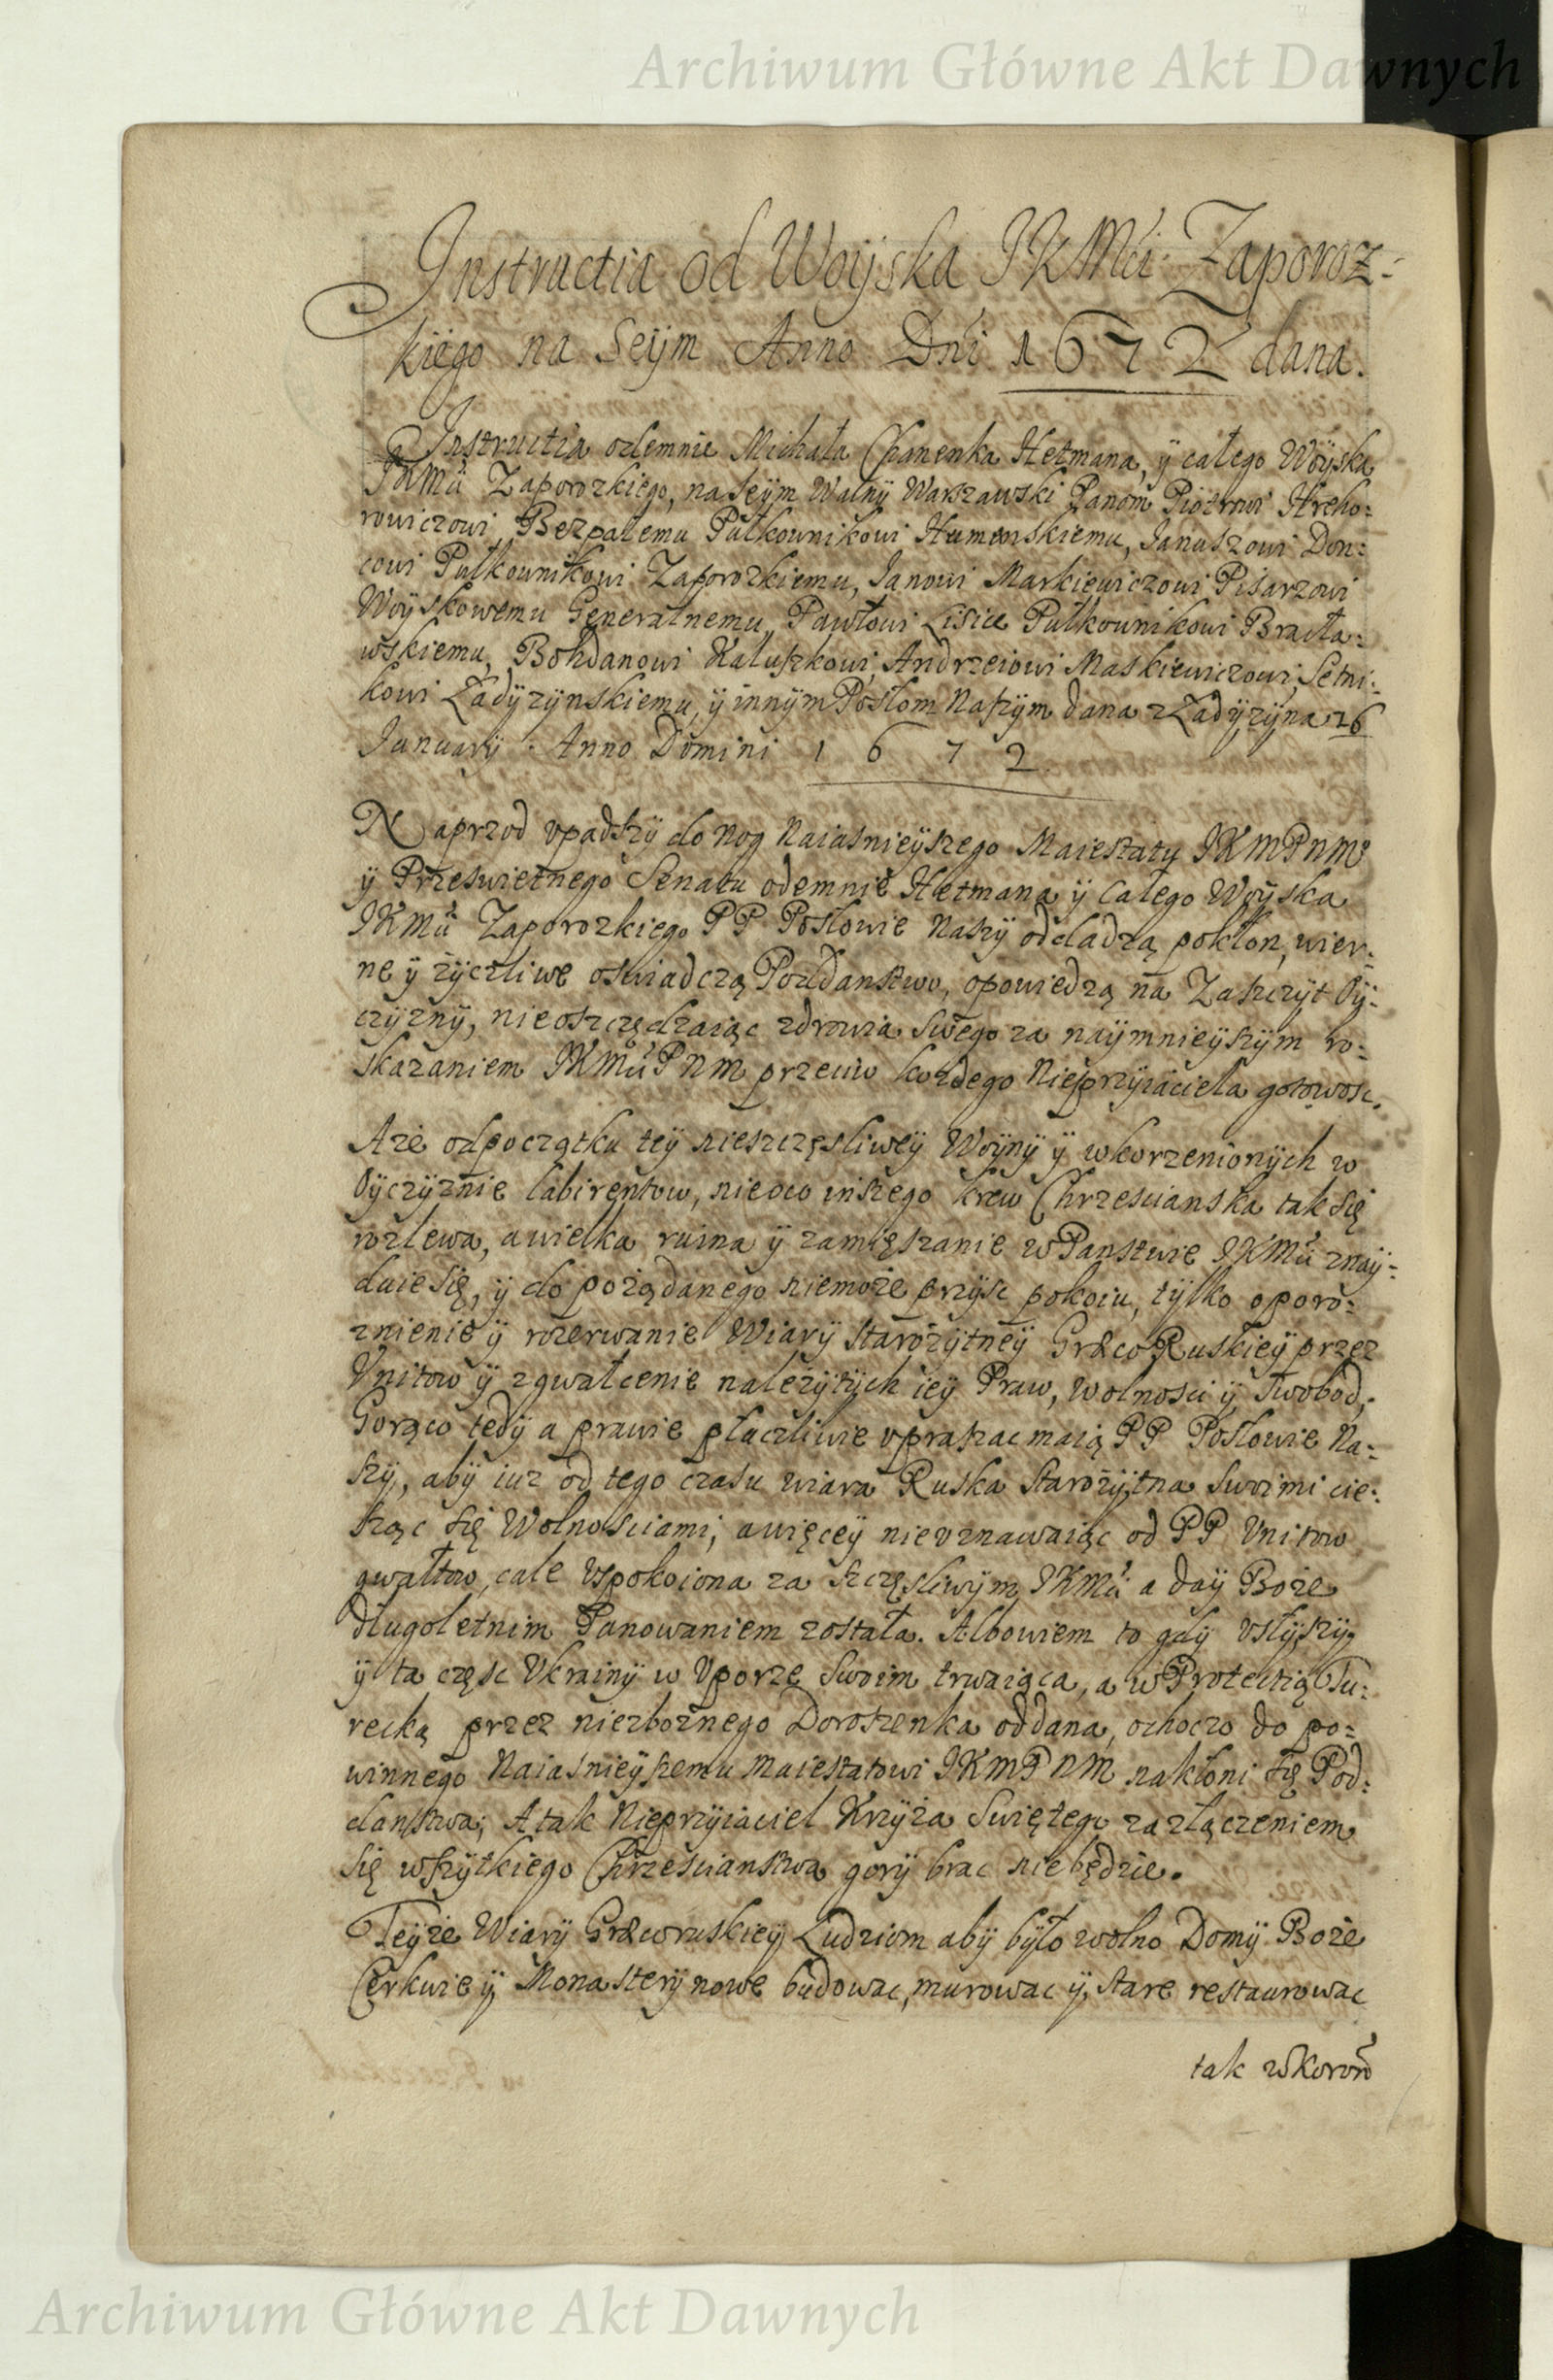 Archiwum Główne Akt Dawnych
Instructia od Woÿska JKMći Zaporoz-
kiego na Seÿm Anno Dni 1672 dana.
Instructia odemnie Michała Chanenka Hetmana, ÿ całego Woÿska
JKMći Zaporozkiego, na Seÿm Walnÿ Warszawski Panom Piotrowi Hreho-
rowiczowi Bezpalemu Pułkownikowi Humenskiemu, Januszowi Don-
cowi Pułkownikowi Zaporozkiemu, Janowi Markiewiczowi Pisarzowi
Woÿskowemu Generalnemu, Pawłowi Lisice Pułkownikowi Bracła-
wskiemu, Bohdanowi Kałuszkowi, Andrzeiowi Maskiewiczowi, Setni-
kowi Ładÿzÿnskiemu, ÿ innÿm Posłom Naszÿm dana z Ładÿzÿna 26
Januarÿ Anno Domini 1672
Naprzod vpadszÿ do Nog Naiasnieÿszego Maiestatu JKMPNMo
ÿ Przeswietnego Senatu odemnie Hetmana ÿ całego Woÿska
JKMći Zaporozkiego PP Posłowie Naszÿ oddadzą pokłon, wier-
ne ÿ zÿczliwe oswiadczą Poddanstwo, opowiedzą na Zaszczÿt Oÿ-
czÿznÿ, nieoszczędzaiąc zdrowia swego za naÿmnieÿszÿm ro-
skazaniem JKMći PNM przeciw kozdego Nieprzÿiaciela gotowosc.
A ze od początku teÿ nieszczęsliweÿ Woÿnÿ ÿ wkorzenionÿch w
Oÿczÿznie labirentow, nie oco inszego krew Chrzescianska tak się
rozlewa, a wielka ruina ÿ zamięszanie w Panstwie JKMći znaÿ-
duie się, ÿ do pożądanego niemoże przÿsc pokoiu, tÿlko o poro-
znienie ÿ rozerwanie Wiarÿ starożÿtneÿ GræcoRuskieÿ przez
Vnitow ÿ zgwałcenie należÿtÿch ieÿ Praw, wolnosci ÿ Swobod;
Gorąco tedÿ a prawie płaczliwie vpraszac maią PP Posłowie Na-
szÿ, abÿ iuz od tego czasu wiara Ruska starożÿtna swoimi cie-
sząc się Wolnosciami, a więceÿ nievznawaiąc od PP Vnitow
gwałtow, cale vspokoiona za szczęsliwÿm JKMći a daÿ Boże
długoletnim Panowaniem została. Albowiem to gdÿ vsłÿszÿ
ÿ ta częsc Vkrainÿ w Vporze swoim trwaiąca, a w Protectią Tu-
recką przez niezbożnego Doroszenka oddana, ochoczo do po-
winnego Naiasnieÿszemu Maiestatowi JKMPNM nakłoni się Pod-
danstwa; A tak Nieprzÿiaciel Krzÿża Swiętego za złączeniem
się wszÿtkiego Chrzescianstwa gorÿ brac niebędzie.
Teÿże Wiarÿ Græcoruskieÿ Ludziom abÿ bÿło wolno Domÿ Boże
Cerkwie ÿ Monasterÿ nowe budowac, murowac ÿ stare restaurowac
tak w Koron
Archiwum Główne Akt Dawnych